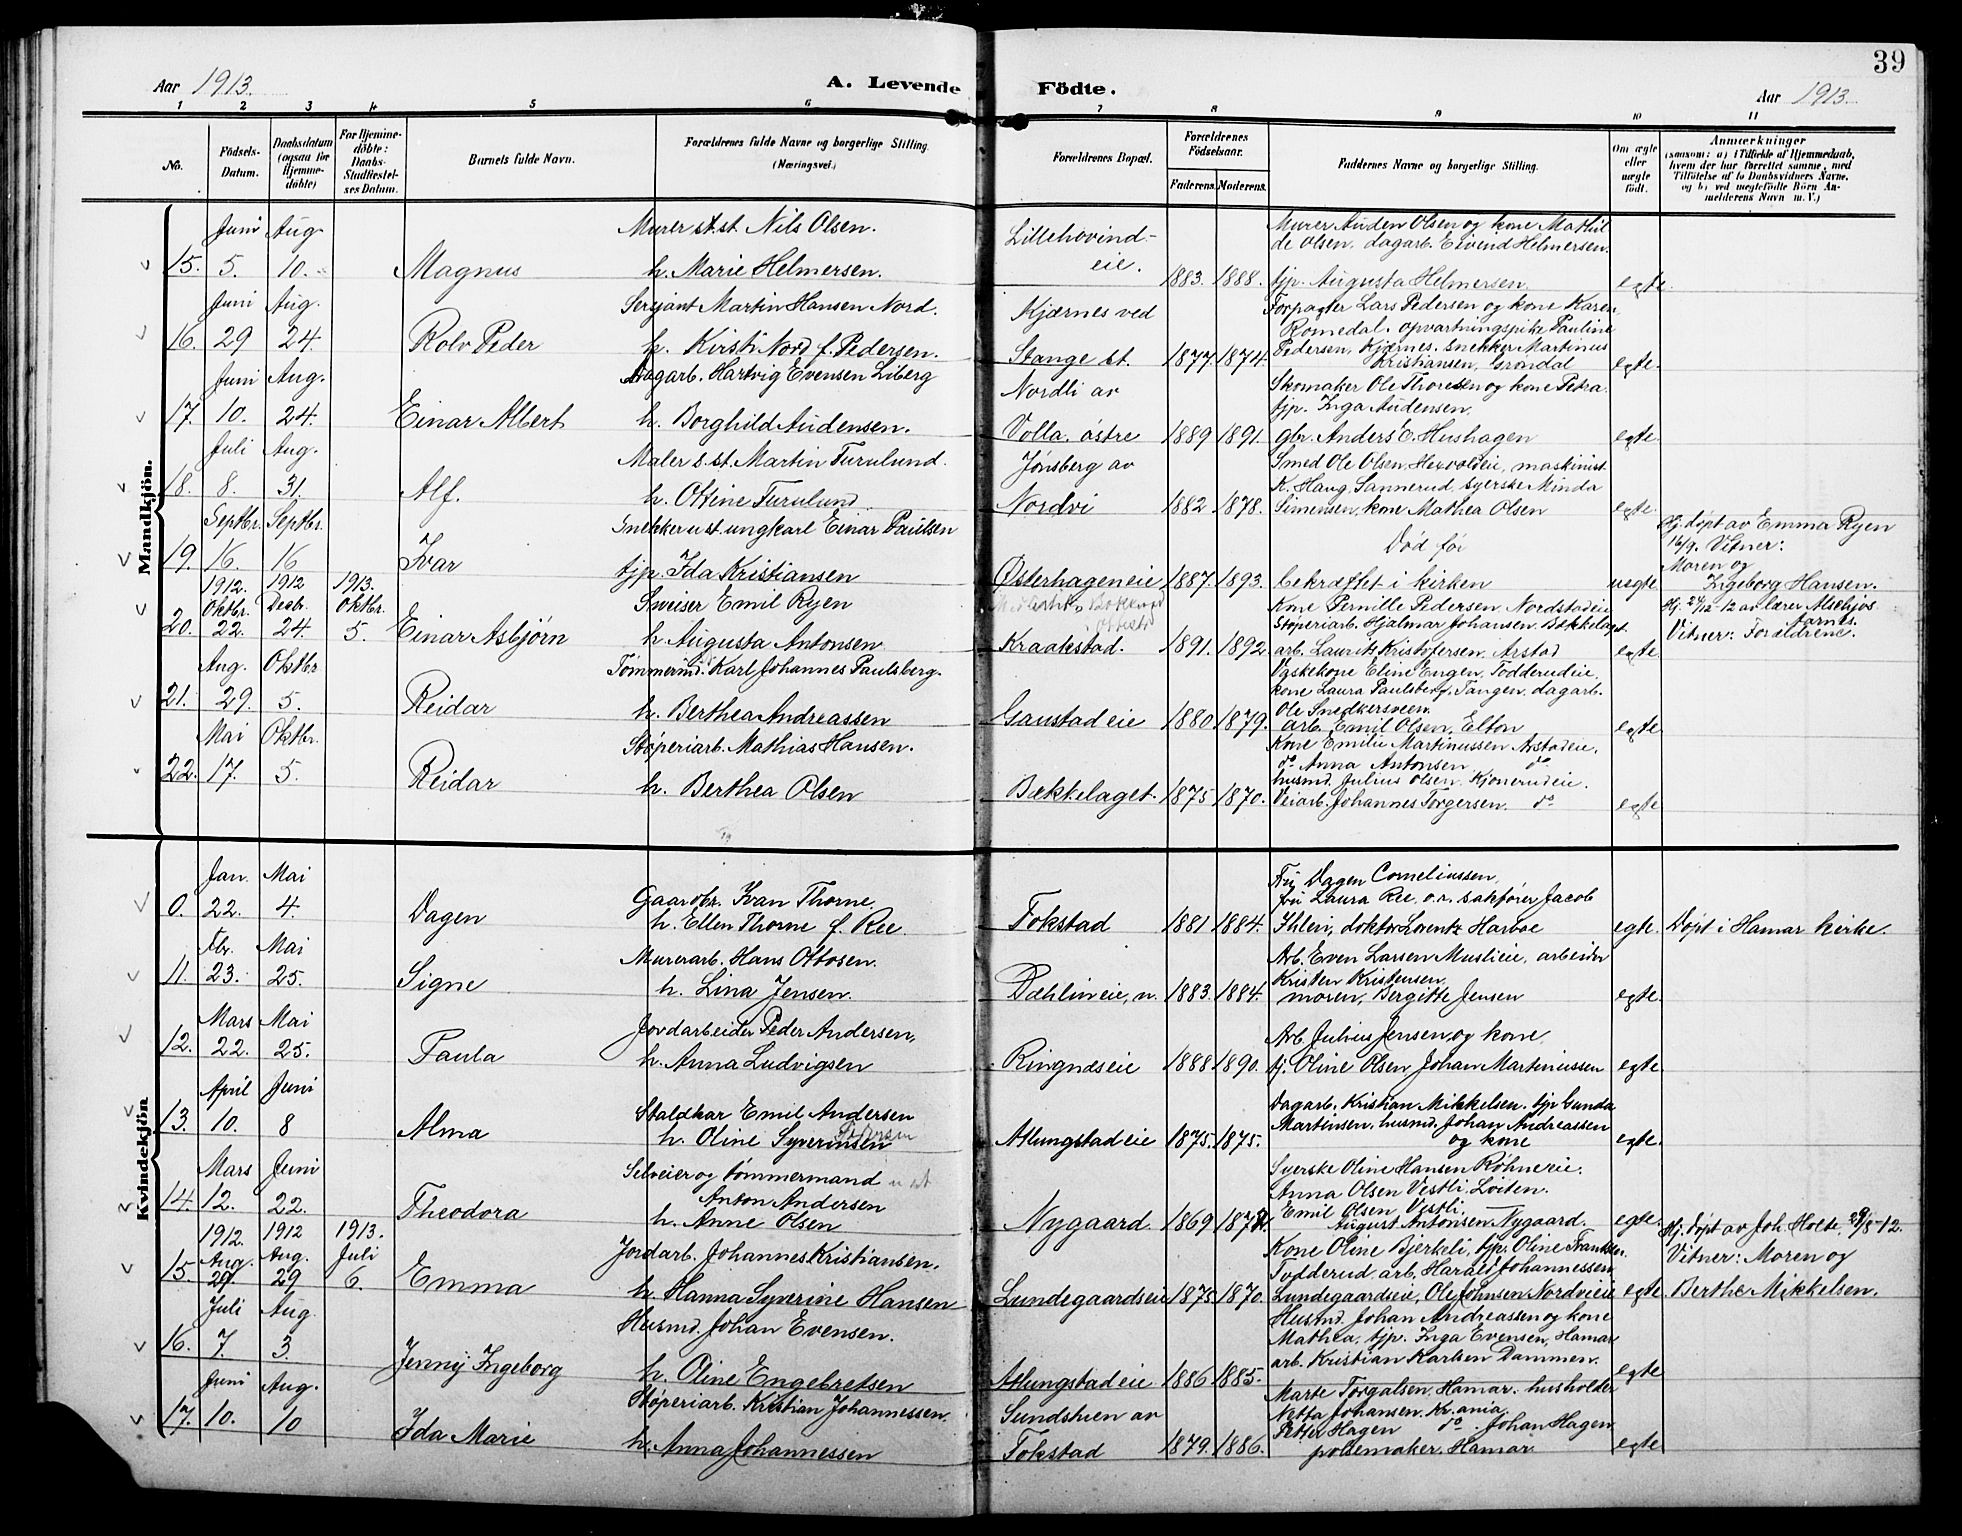 39
Aar 1913. A. Levende Födte. Aar 1913.
1 2 3 4 5 6 7 8 9 10 11
No. Födsels-Datum. Daabsdatum (ogsaa for Hjemmedöbte) For Hjemmedöbte: Daabs-Stadfæstelses Datum. Barnets fulde Navn. Forældrenes fulde Navne og borgerlige Stilling. (Næringsvei.) Forældrenes Bopæl. Forældrenes Födselsaar. Faderens. Moderens. Faddernes Navne og borgerlige Stilling. Om ægte eller uægte födt. Anmærkninger (saasom: a) i Tilfælde af Hjemmedaab, hvem der har forrettet samme, med Tilföielse af to Daabsvidners Navne. og b) ved uægtefödte Börn Anmelderens Navn m. V.)
Mandkjön.
Juni Aug. Murer st.st. Nils Olsen. Lillehovind- Murer Auden Olsen og kone Mathil
de Olsen, dagarb. Eivend Helmersen.
15. 5. 10. Magnus h. Marie Helmersen. eie. 1883. 1888. tjp. Augusta Helmersen. egte.
Juni Aug. Serjant Martin Hansen Nord. Kjærnes ved Forpagter Lars Pedersen og kone Karen,
Romedal. opvartningspike Pauline
16. 29 24. Rolv Peder h. Kirsti Nord f. Pedersen. Stange st. 1877. 1874. Pedersen, Kjærnes. snekker Martinus
Kristiansen, Grøndal egte.
Juni Aug. Dagarb. Hartvig Evensen Liberg Nordli av Skomaker Ole Thoresen og kone Petra.
tjp. Inga Audensen.
17. 10. 24. Einar Albert h. Borghild Audensen. Volla, østre 1889 1891. gbr. Anders O. Hushagen egte.
Juli Aug. Maler s.st. Martin Turulund. Jønsberg av Smed Ole Olsen, Hexvoldeie, maskinist
K. Haug, Sannerud, syerske Minda
18. 8. 31. Alf. h. Otine Turulund Nordvi 1882 1878. Simensen, kone Mathea Olsen egte.
Septbr. Septbr. Snekker ust. ungkarl Einar Paulsen Død før Hj. døpt av Emma Ryen
16/9. Vitner:
Moren og
19. 16. 16 Ivar tjp. Ida Kristiansen Østerhageneie 1887. 1893. bekræftet i kirken uegte. Ingeborg Hansen.
1912. 1912 1913.
Oktbr. Desb. Oktbr. Sveiser Emil Ryen Kone Pernille Pedersen, Nordstadeie Hj. 24/12-12 av lærer
Støperiarb. Hjalmar Johansen. Bækkelaget. Aarnes.
20. 22. 24. 5. Einar Asbjørn h. Augusta Antonsen Kraakstad. 1891. 1892. arb. Laurits Kristofersen, Arstad egte. Vitner: Forældrene.
Aug. Oktbr. Tømmermd. Karl Johannes Paulsberg. Vaskekone Eline Engen, Todderudeie,
kone Laura Paulsberg, Tangen, dagarb.
Ole Snedkersveen.
21. 29. 5. Reidar h. Berthea Andreassen Gaustadeie 1880 1879. arb. Emil Olsen, Elton egte.
Mai Oktbr. Støperiarb. Mathias Hansen. Kone Emilie Martinussen Arstadeie,
do Anna Antonsen do
husmd. Julius Olsen. Kjonerudeie.
22. 17. 5. Reidar h. Berthea Olsen Bækkelaget 1875 1870. Veiarb. Johannes Torgersen. do egte
Kvindekjön
Jan. Mai Gaardbr. Ivan Thorne. Fru Dagen Corneliussen,
fru Laura Ree, o.r. sakfører Jacob
0. 22. 4. Dagen h. Ellen Thorne f. Ree Fokstad 1881 1884. Ihlen, doktor Lorentz Harboe egte. Døpt i Hamar kirke.
Fbr. Mai Murerarb. Hans Ottosen. Arb. Even Larsen Muslieie, arbeider
Kristen Kristensen,
11. 23. 25. Signe h. Lina Jensen. Dæhlineie, n. 1883. 1884. moren, Bergitte Jensen egte.
Mars Mai Jordarbeider Peder Andersen, Arb. Julius Jensen og kone,
12. 22. 25. Paula h. Anna Ludvigsen Ringnæseie 1888 1890. tj. Oline Olsen, Johan Martinussen egte
April Juni Staldkar Emil Andersen Dagarb. Kristian Mikkelsen. tjp Gunda
Martinsen, husmd. Johan Andreassen
13. 10. 8 Alma h. Oline Syverinsen Atlungstadeie 1875. 1875. og kone egte.
Mars Juni Selveier og tømmermand u st Syerske Oline Hansen Røhneeie.
Anton Andersen Anna Olsen Vestli. Løiten.
14. 12. 22. Theodora h. Anne Olsen Nygaard. 1869 Emil Olsen, Vestli.
August Antonsen Nygaard. egte.
1912. 1912 1913.
Aug. Aug. Juli Jordarb. Johannes Kristiansen. Kone Oline Bjerkeli, tjp. Oline Frantzen, Hj. døpt av Joh. Holte, 29/8-12.
Todderud, arb. Harald Johannessen Vitner: Moren og
15 29 29 6. Emma h. Hanna Syverine Hansen Lundegaardseie 1875. 1870. Lundegaardseie, Ole Johnsen Nordvieie egte. Berthe Mikkelsen.
Juli Aug. Husmd. Johan Evensen. Husmd. Johan Andreassen og kone
Mathea, tjp. Inga Evensen, Hamar
16. 7. 3. Jenny Ingeborg h. Oline Engebretsen Atlungstadeie 1886 1885. arb. Kristian Karlsen Dammen. egte
Juni Aug. Støperiarb. Kristian Johannessen. Sundstuen av Marte Torgalsen, Hamar. husholder
Netta Johansen. Kr.ania.
17. 10. 10 Ida Marie h. Anna Johannessen Fokstad 1879. 1886. Petter Hagen do. Johan Hagen
pølsemaker. Hamar egte